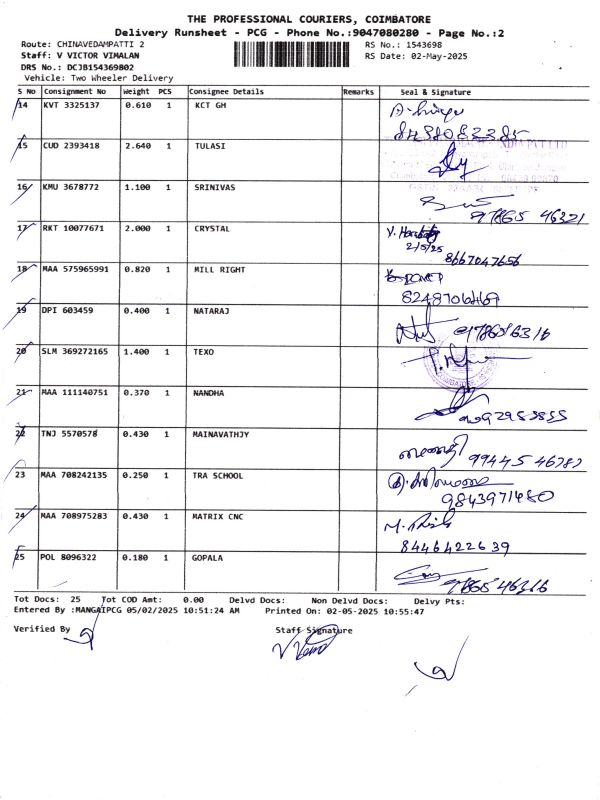 THE PROFESSIONAL COURIERS, COIMBATORE
Delivery Runsheet - PCG - Phone No.:9047080280 - Page No.:2
Route: CHINAVEDAMPATTI 2
RS No.: 1543698
Staff: V VICTOR VIMALAN
RS Date: 02-May-2025
DRS No.: DCJB154369802
Vehicle: Two Wheeler Delivery
S No Consignment No Weight PCS Consignee Details Remarks Seal & Signature
14 KVT 3325137 0.610 1 KCT GH
15 CUD 2393418 2.640 1 TULASI
16 KMU 3678772 1.100 1 SRINIVAS
97865 46321
17 RKT 10077671 2.000 1 CRYSTAL
2/5/25
8667047656
18 MAA 575965991 0.820 1 MILL RIGHT
19 DPI 603459 0.400 1 NATARAJ
20 SLM 369272165 1.400 1 TEXO
21 MAA 111140751 0.370 1 NANDHA
22 TNJ 5570578 0.430 1 MAINAVATHJY
99445 46787
23 MAA 708242135 0.250 1 TRA SCHOOL
9843971480
24 MAA 708975283 0.430 1 MATRIX CNC
8446422639
25 POL 8096322 0.180 1 GOPALA
97865 46316
Tot Docs: 25 Tot COD Amt: 0.00 Delvd Docs: Non Delvd Docs: Delvy Pts:
Entered By :MANGAIPCG 05/02/2025 10:51:24 AM Printed On: 02-05-2025 10:55:47
Verified By Staff Signature